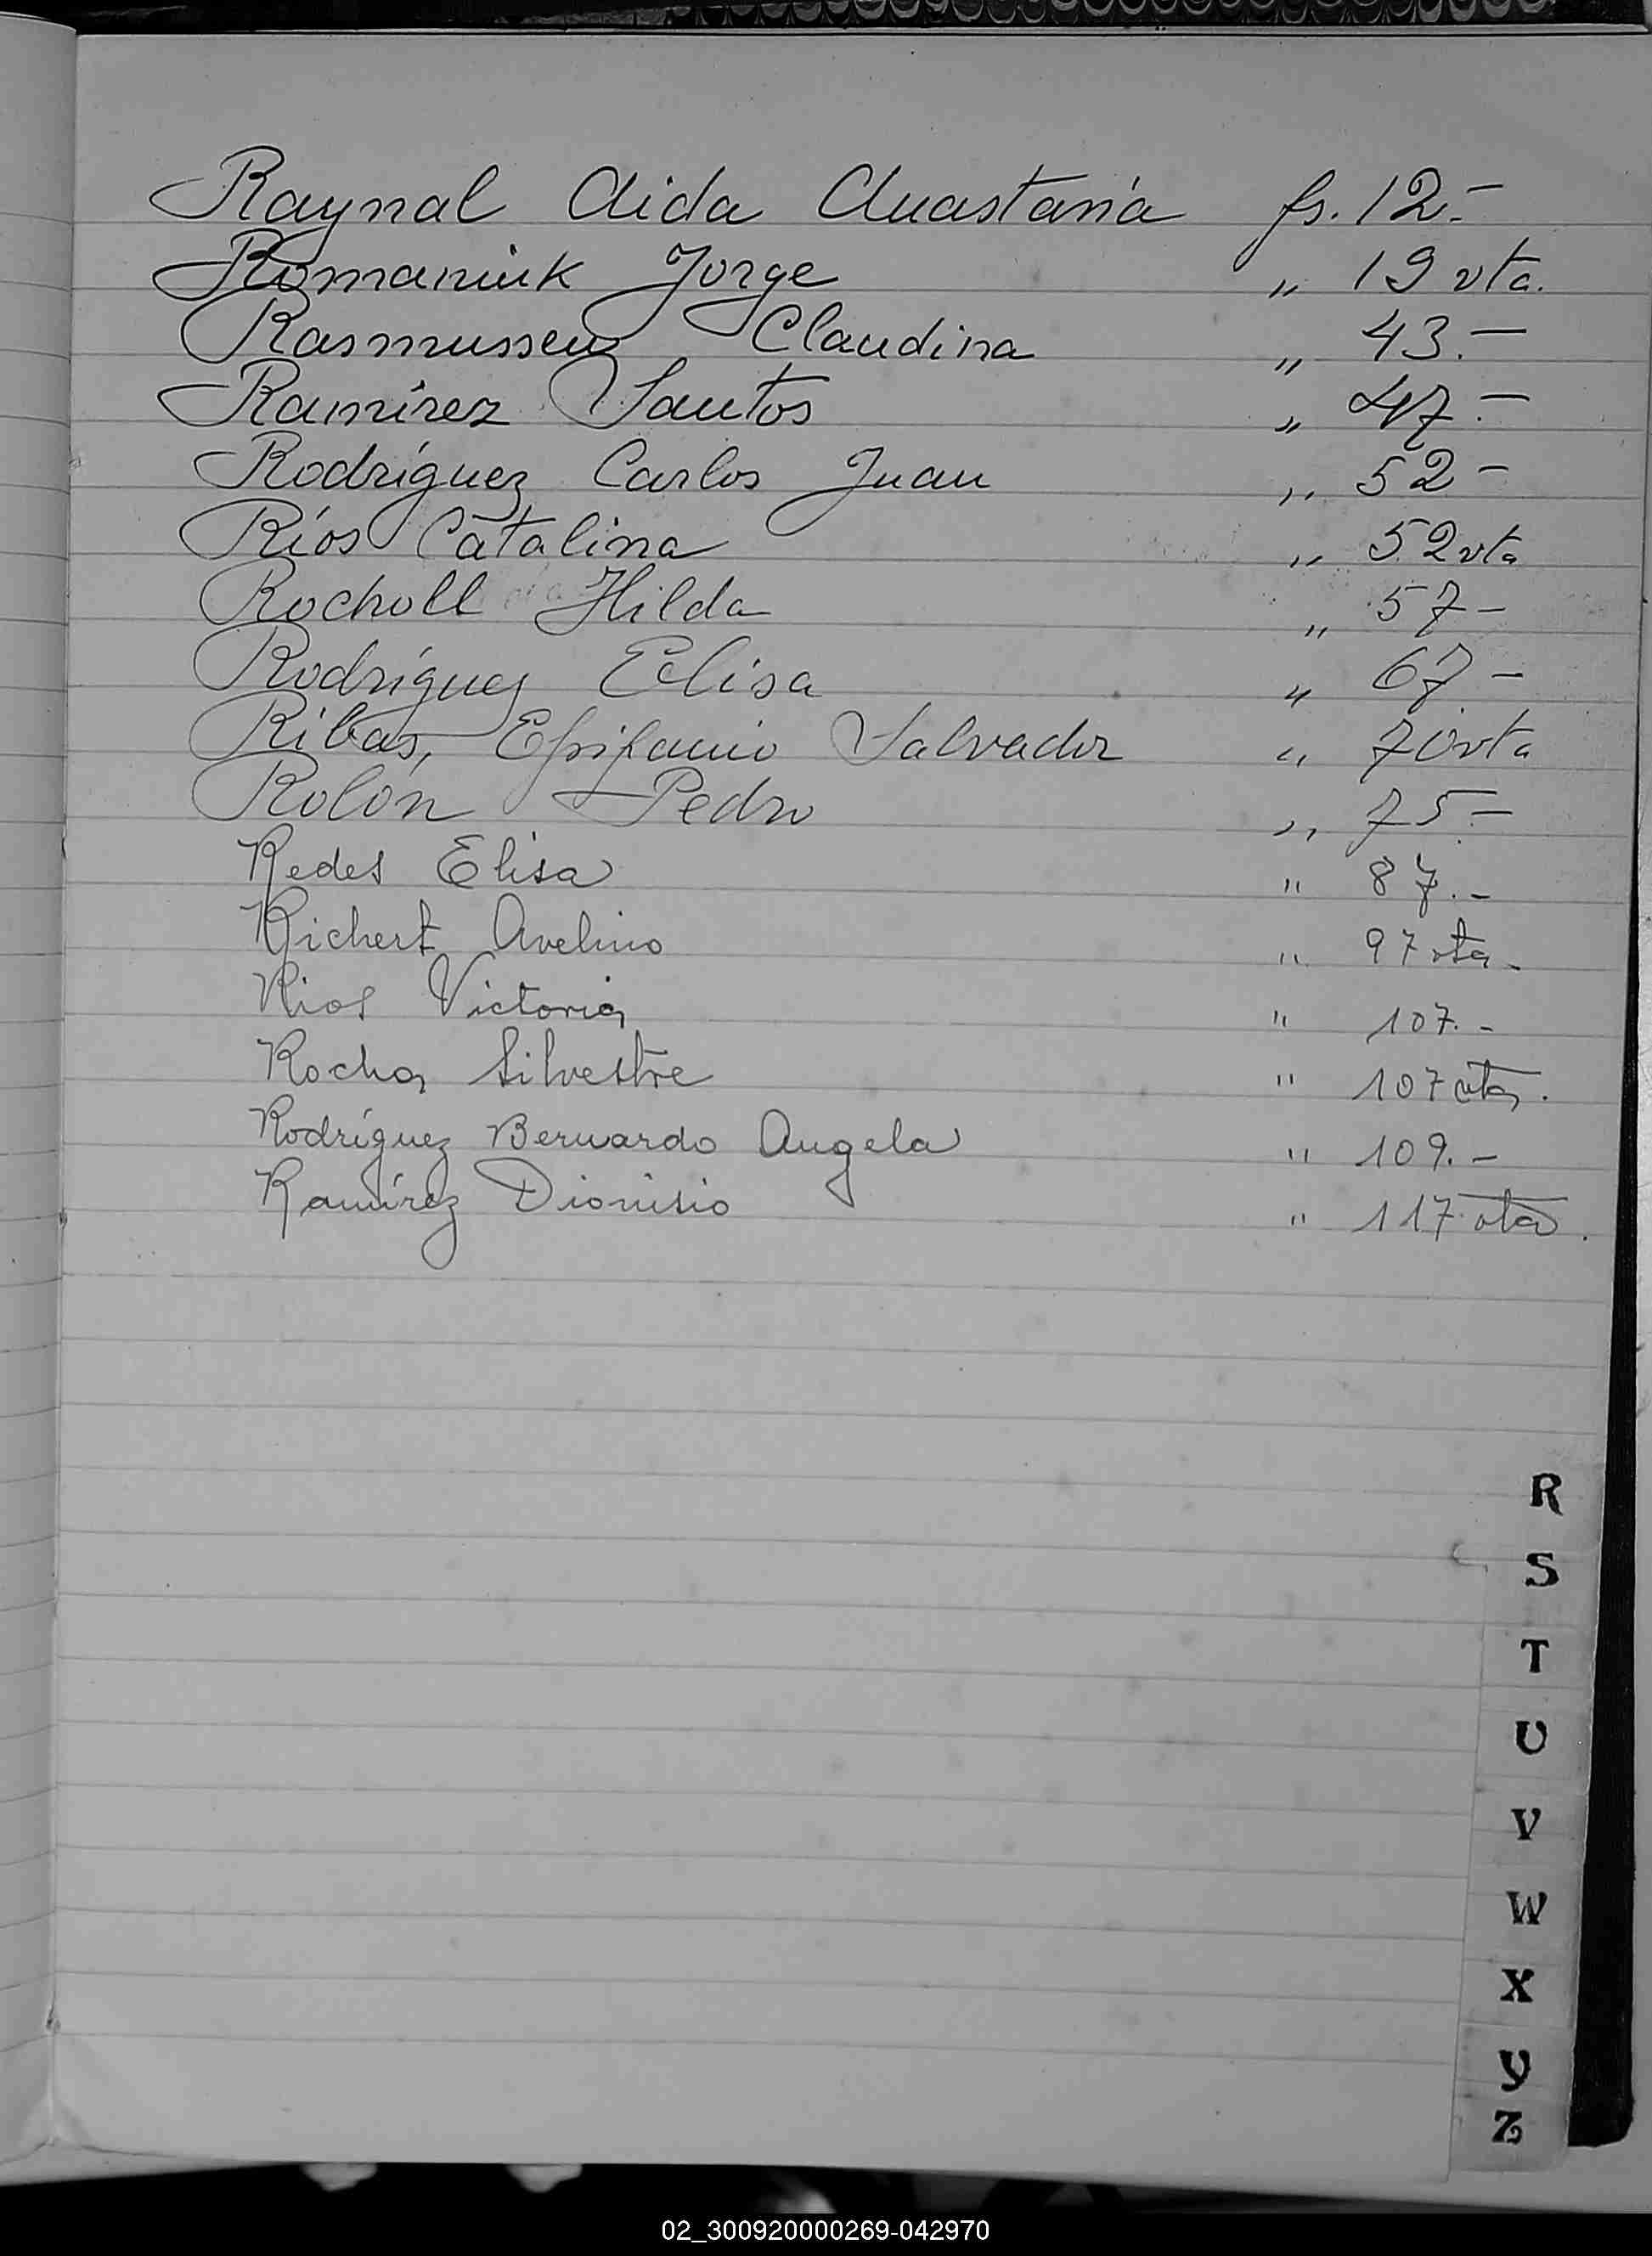 Raynal Aida Anastasia fs. 12.-
Romaniuk Jorge " 19 vta.
Rasmussen Claudina " 43.-
Ramírez Santos " 47.-
Rodríguez Carlos Juan " 52-
Ríos Catalina " 52 vta
Rocholl Hilda " 57-
Rodríguez Elisa " 67-
Ribas, Epifanio Salvador " 70 vta
Rolón Pedro " 75.-
Redes Elisa " 87.-
Richert Avelino " 97 vta-
Rios Victoria " 107.-
Rocha Silvestre " 107 vta.
Rodríguez Bernardo Angela " 109.-
Ramírez Dionisio " 117 vta.
R
S
T
U
V
W
X
Y
Z
02_300920000269-042970